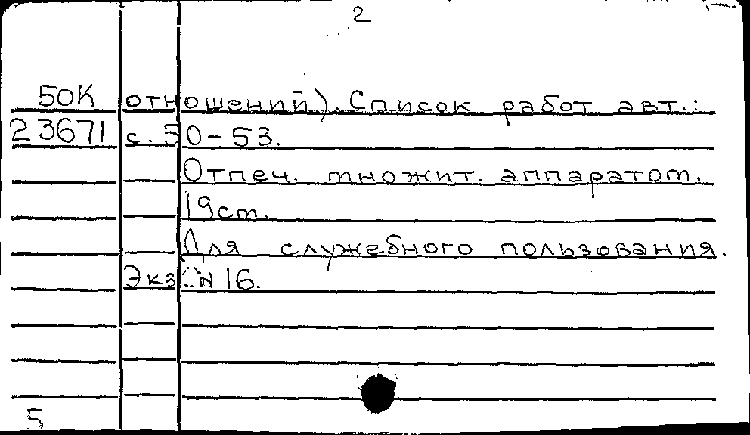 2
50К отношений). Список работ авт.:
23671 с. 50-53.
Отпеч. множит. аппаратом.
19см.
Для служебного пользования.
Экз. N 16.
5